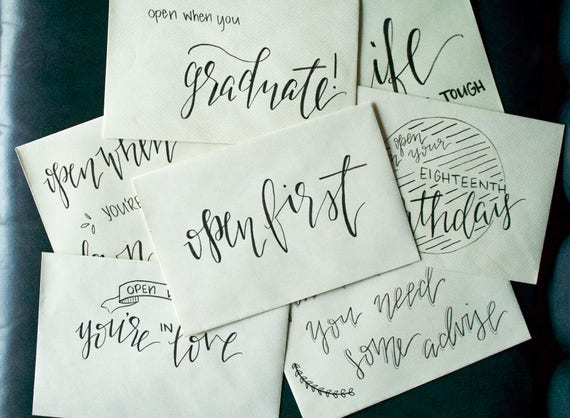 open when you
graduate!
ife
TOUGH
open when
you're
open
on your
EIGHTEENTH
birthday
open first
OPEN
you're IN
love
you need
some advise